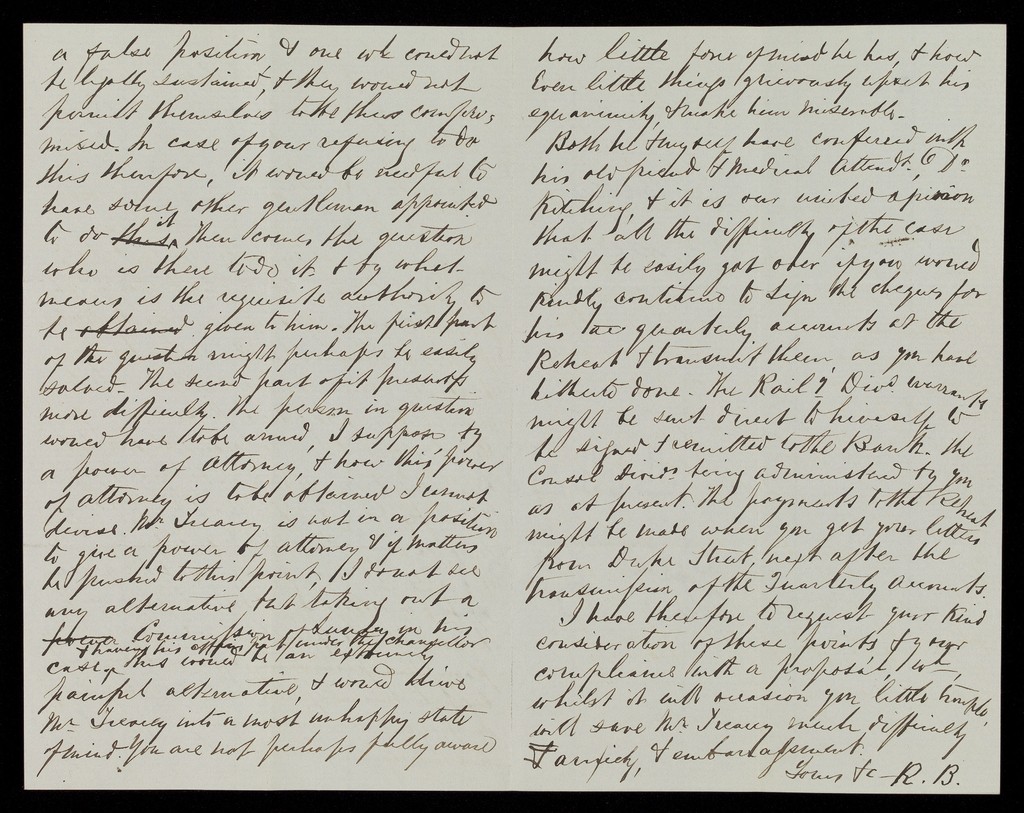 a false position, & one wh could not
be legally sustained, & they would not
permit themselves to be thus compro-
mised. In case of your refusing to do
this therefore, it would be needful to
have some other gentleman appointed
to do this it. Then comes the question
who is there to do it & by what
means is the requisite authority to
be obtained given to him. The first part
of the question might perhaps be easily
solved. The second part of it presents
more difficulty. The person in question
would have to be armed, I suppose by
a power of attorney, & how this power
of attorney is to be obtained I cannot
devise. Mr. is not in a position
to give a power of attorney & if matters
be pushed to this point, I do not see
any alternative but taking out a
power Commission Lunacy in his
& having his affairs put under the Chancellor
case. This would be an extremely
painful alternative, & would drive
Mr. into a most unhappy state
of mind. You are not perhaps fully aware
how little force of mind he has, & how
even little things grievously upset his
equanimity, & make him miserable.
Both he & myself have conferred with
his old friend & medical attendt. Dr.
Kitching, & it is our united opinion
that all the difficulty of the case
might be easily got over if you would
kindly continue to sign the cheques for
his quarterly accounts at the
Retreat & transmit them, as you have
hitherto done. The Raily. Divd. warrants
might be sent direct to himself to
be signed & remitted to the Bank. The
Consol Divids. being administered by you
as at present. The payments to the Retreat
might be made when you get your letters
from Duke Street, next after the
transmission of the Quarterly accounts.
I have therefore to request your kind
consideration of these points & your
compliance with a proposal wh.
whilst it will occasion you little trouble
will save Mr. much difficulty
& anxiety, & embarrassment.
Yours &c R. B.